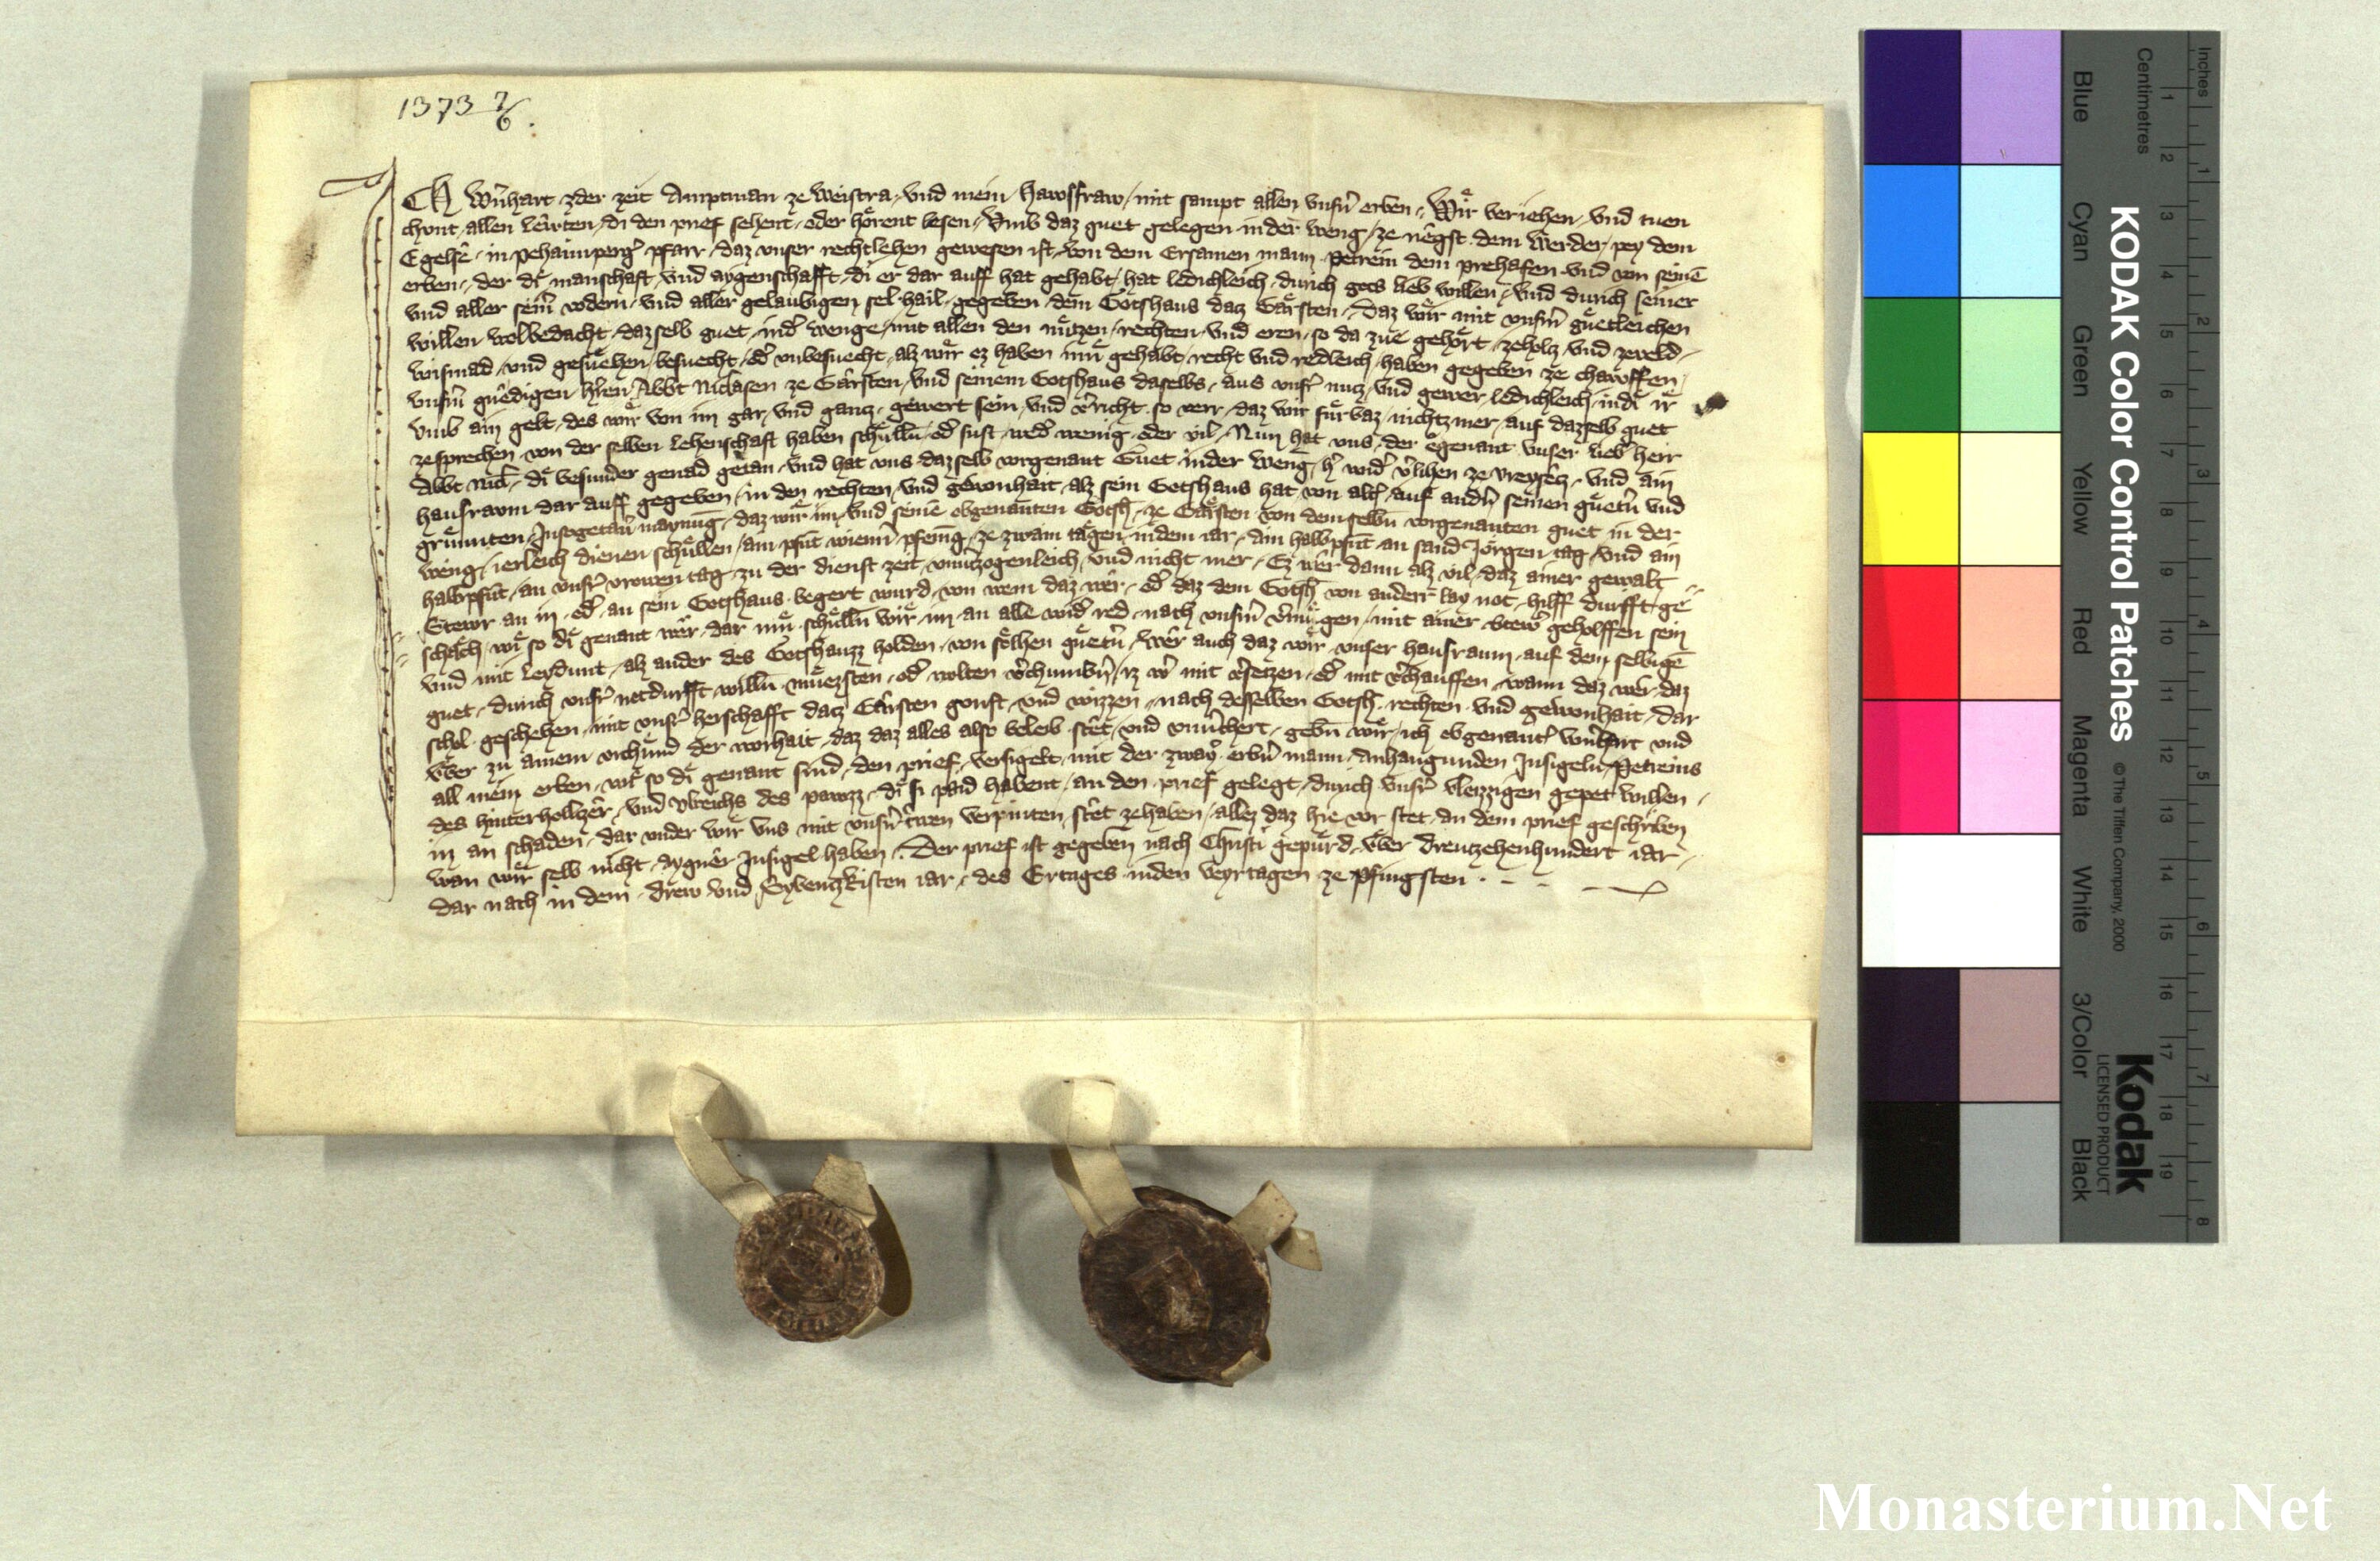 1373 7/6.
Ich Wernhart zder zeit Amptman ze Weistra, vnd mein Hawsfraw, mit sampt allen vnsern erben, Wir veriehen, vnd tuen
chunt, allen Lewten, di den prief sehent, oder hörent lesen, Vmb daz guet gelegen in der Weng, ze nêgst dem Werder, pey dem
Egelsê, in pehaimperger pfarr, daz vnser rechtlehen gewesen ist, von dem Ersamen mann, Petrein dem prehafen, vnd von seinē
erben, der di manschaft, vnd aygenschafft, di er dar auff hat gehabt, hat ledichleich, durich gots lieb willen, vnd durich seiner
vnd aller seinr vodern, vnd aller gelaubigen sel hail, gegeben dem Gotshaus datz Gärsten, Daz wir mit vnserm güetleichen
willen wolbedacht, dazselb guet, in der wenge, mit allen den nützen, rechten, vnd eren, so da zue gehört, zeholz, vnd zeveld,
wismad, vnd gesüehen, besuecht, oder vnbesuecht, alz wir ez haben inn gehabt, recht vnd redleich, haben gegeben ze chawffen,
vnserm gnêdigen herren, Abbt Niclasen ze Gârsten, vnd seinem Gotshaus daselbs, aus vnser nutz, vnd gewer, ledichleich, in di ir
vmb ain gelt, des wir von im gar, vnd gantz, gewert sein, vnd verricht, so verr, daz wir fürbaz, nichtz mer, auf dazselb guet
zesprechen, von der selben Lehenschaft haben schulln, oder sust, weder wenig, oder vil, Nun hat vns, der egenant vnser lieber herr
Abbt Nicl, di besunder genad getan, vnd hat vns dazselb vorgenant Guet, in der Weng, her wider verlihen ze vreysêtz, vnd ain
hausfrawn dar auff gegeben, in den rechten, vnd gewonhait, alz sein Gotshaus hat, von alter, auf andern seinen guetern vnd
gründten, In sogetaner maynūg, daz wir im, vnd seinē obgenanten Gotsh, ze Gärsten, von demselbn vorgenanten guet in der
weng, ierleich dienen schullen, ain pfūt wienner pfenīg, ze zwain tägen, in dem iar, Ain halbpfūt an sand Jörgen tag, vnd ain
halbpfūt, an vnser vrowen tag, zu der dienst zeit, vnuerzogenleich, vnd nicht mer, Ez wêr dann alz vil, daz ainer gewalt
Stewr an in, oder an sein Gotshaus begert wurd, von wem daz wêr, oder daz dem Gotsh von anderr lay not, hilff durfft, ge
schäch, wie so di genant wêr, dar inn schulln wir, im an alle wider red, nach vnserm vermügen, mit ainer stewr geholffen sein
vnd mit Leydunt, alz ander des Gotshauzz holden, von sölhen guetern, Wêr auch daz wir, vnser hausfrawn, auf dem selbigē
guet, durich vnser notdurfft willn, muezsten, oder wolten verchumbern, iz wer mit versetzen, oder mit verchauffen, wann daz wêr, daz
schol geschehen, mit vnser herschafft datz Gârsten gonst, vnd wizzen, nach desselben Gotsh, rechten, vnd gewonhait, Dar
vber zu ainem vrchünd der worhait, daz daz alles also beleib stêt, vnd vnuerchert, gebn wir, ich obgenanter Wernhart vnd
all mein erben, wie so di genant sind, den prief, versigelt, mit der zwayer erbern mann, Anhangunden Insigeln, Petreins
des Hinterholtzêr, vnd Vlreichs des pawzz, di si paid habent, an den prief gelegt, durich vnser vleizzigen gepet willen,
in an schaden, dar vnder wir vns mit vnsern trwen verpinten, stêt ze haben, allez daz hie vor stet, an dem prief geschriben
wan wir selb nicht, aygner Insigel haben, Der prief ist gegeben nach Christi gepürd, vber drentzehenhundert iar,
dar nach in dem drew vnd Sybentzkisten iar, des Ertages in den veyrtagen ze pfingsten.
KODAK Color Control Patches
© The Tiffen Company, 2000
Kodak
LICENSED PRODUCT
Blue Cyan Green Yellow Red Magenta White 3/Color Black
Inches 1 2 3 4 5 6 7 8
Centimetres 1 2 3 4 5 6 7 8 9 10 11 12 13 14 15 16 17 18 19
Monasterium.Net